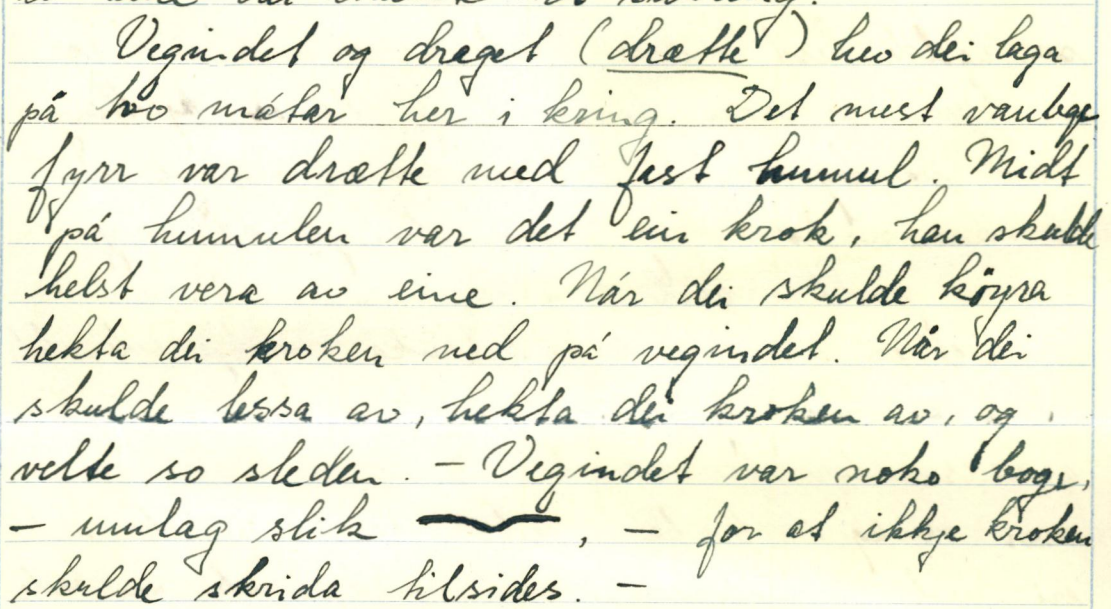 Vegindet og draget (drætte) hev dei laga
på two måtar her i kring. Det mest vanlege
fyrr var drætte med fast humul. Midt
på humulen var det ein krok, han skulde
helst vera av eine. Når dei skulde köyra
hekta dei kroken ned på vegindet. Når dei
skulde lessa av, hekta dei kroken av, og
velte so sleden. – Vegindet var noko boge,
– umlag slik , – for at ikkje kroken
skulde skrida tilsides. –